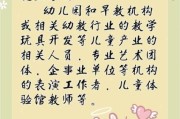 幼儿园和早教机构
或相关幼教行业的教学
玩具开发等儿童产业的
相关人员，专业艺术团
体、企事业单位等机构
的表演工作者，儿童体
验馆教师等。